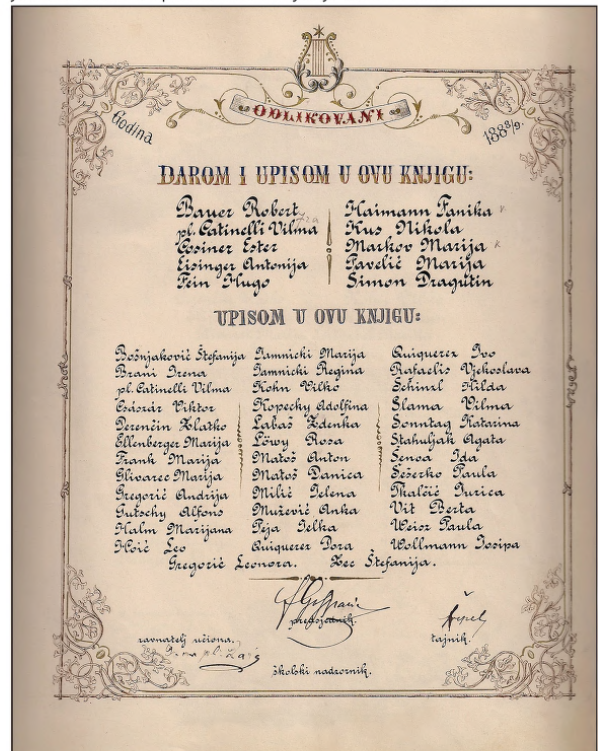 ODLIKOVANI
Godina
1888/9.
DAROM I UPISOM U OVU KNJIGU:
Bauer Robert
pl. Catinelli Vilma
Cosiner Ester
Eisinger Antonija
Fein Hugo
Haimann Fanika
Kus Nikola
Markov Marija
Pavelić Marija
Simon Dragutin
UPISOM U OVU KNJIGU:
Bošnjaković Štefanija
Brani Irena
pl. Catinelli Vilma
Császár Viktor
Derenčin Zlatko
Ellenberger Marija
Frank Marija
Glivarec Marija
Gregorić Andrija
Gutschy Alfons
Halm Marijana
Hoić Leo
Jamnicki Marija
Jamnicki Regina
Kohn Vilko
Kopecky Adolfina
Labaš Zdenka
Löwy Rosa
Matoš Anton
Matoš Danica
Milić Jelena
Mužević Anka
Peja Jelka
Quiquerez Dora
Quiquerez Ivo
Rafaelis Vjekoslava
Schinzl Hilda
Slama Vilma
Sonntag Katarina
Stahuljak Agata
Šenoa Ida
Šešerko Paula
Thalčić Jurica
Vit Berta
Weisz Paula
Wollmann Josipa
Gregorić Leonora. Zec Štefanija.
predsjednik.
ravnatelj učiona.
tajnik.
školski nadzornik.